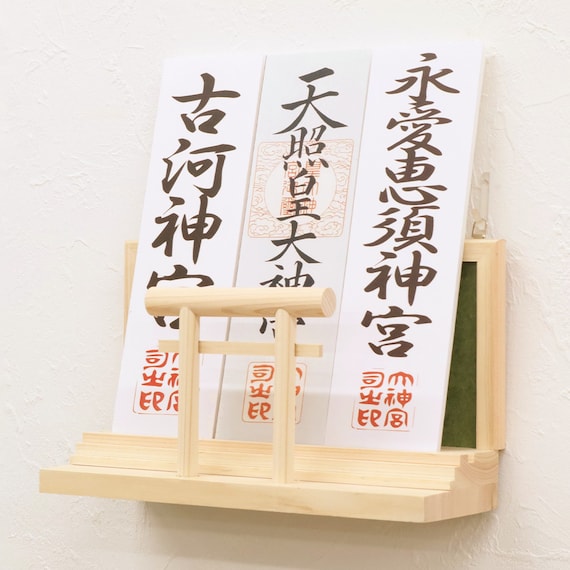 永愛恵須神宮
天照皇大神宮
古河神宮
大神宮司之印
大神宮司之印